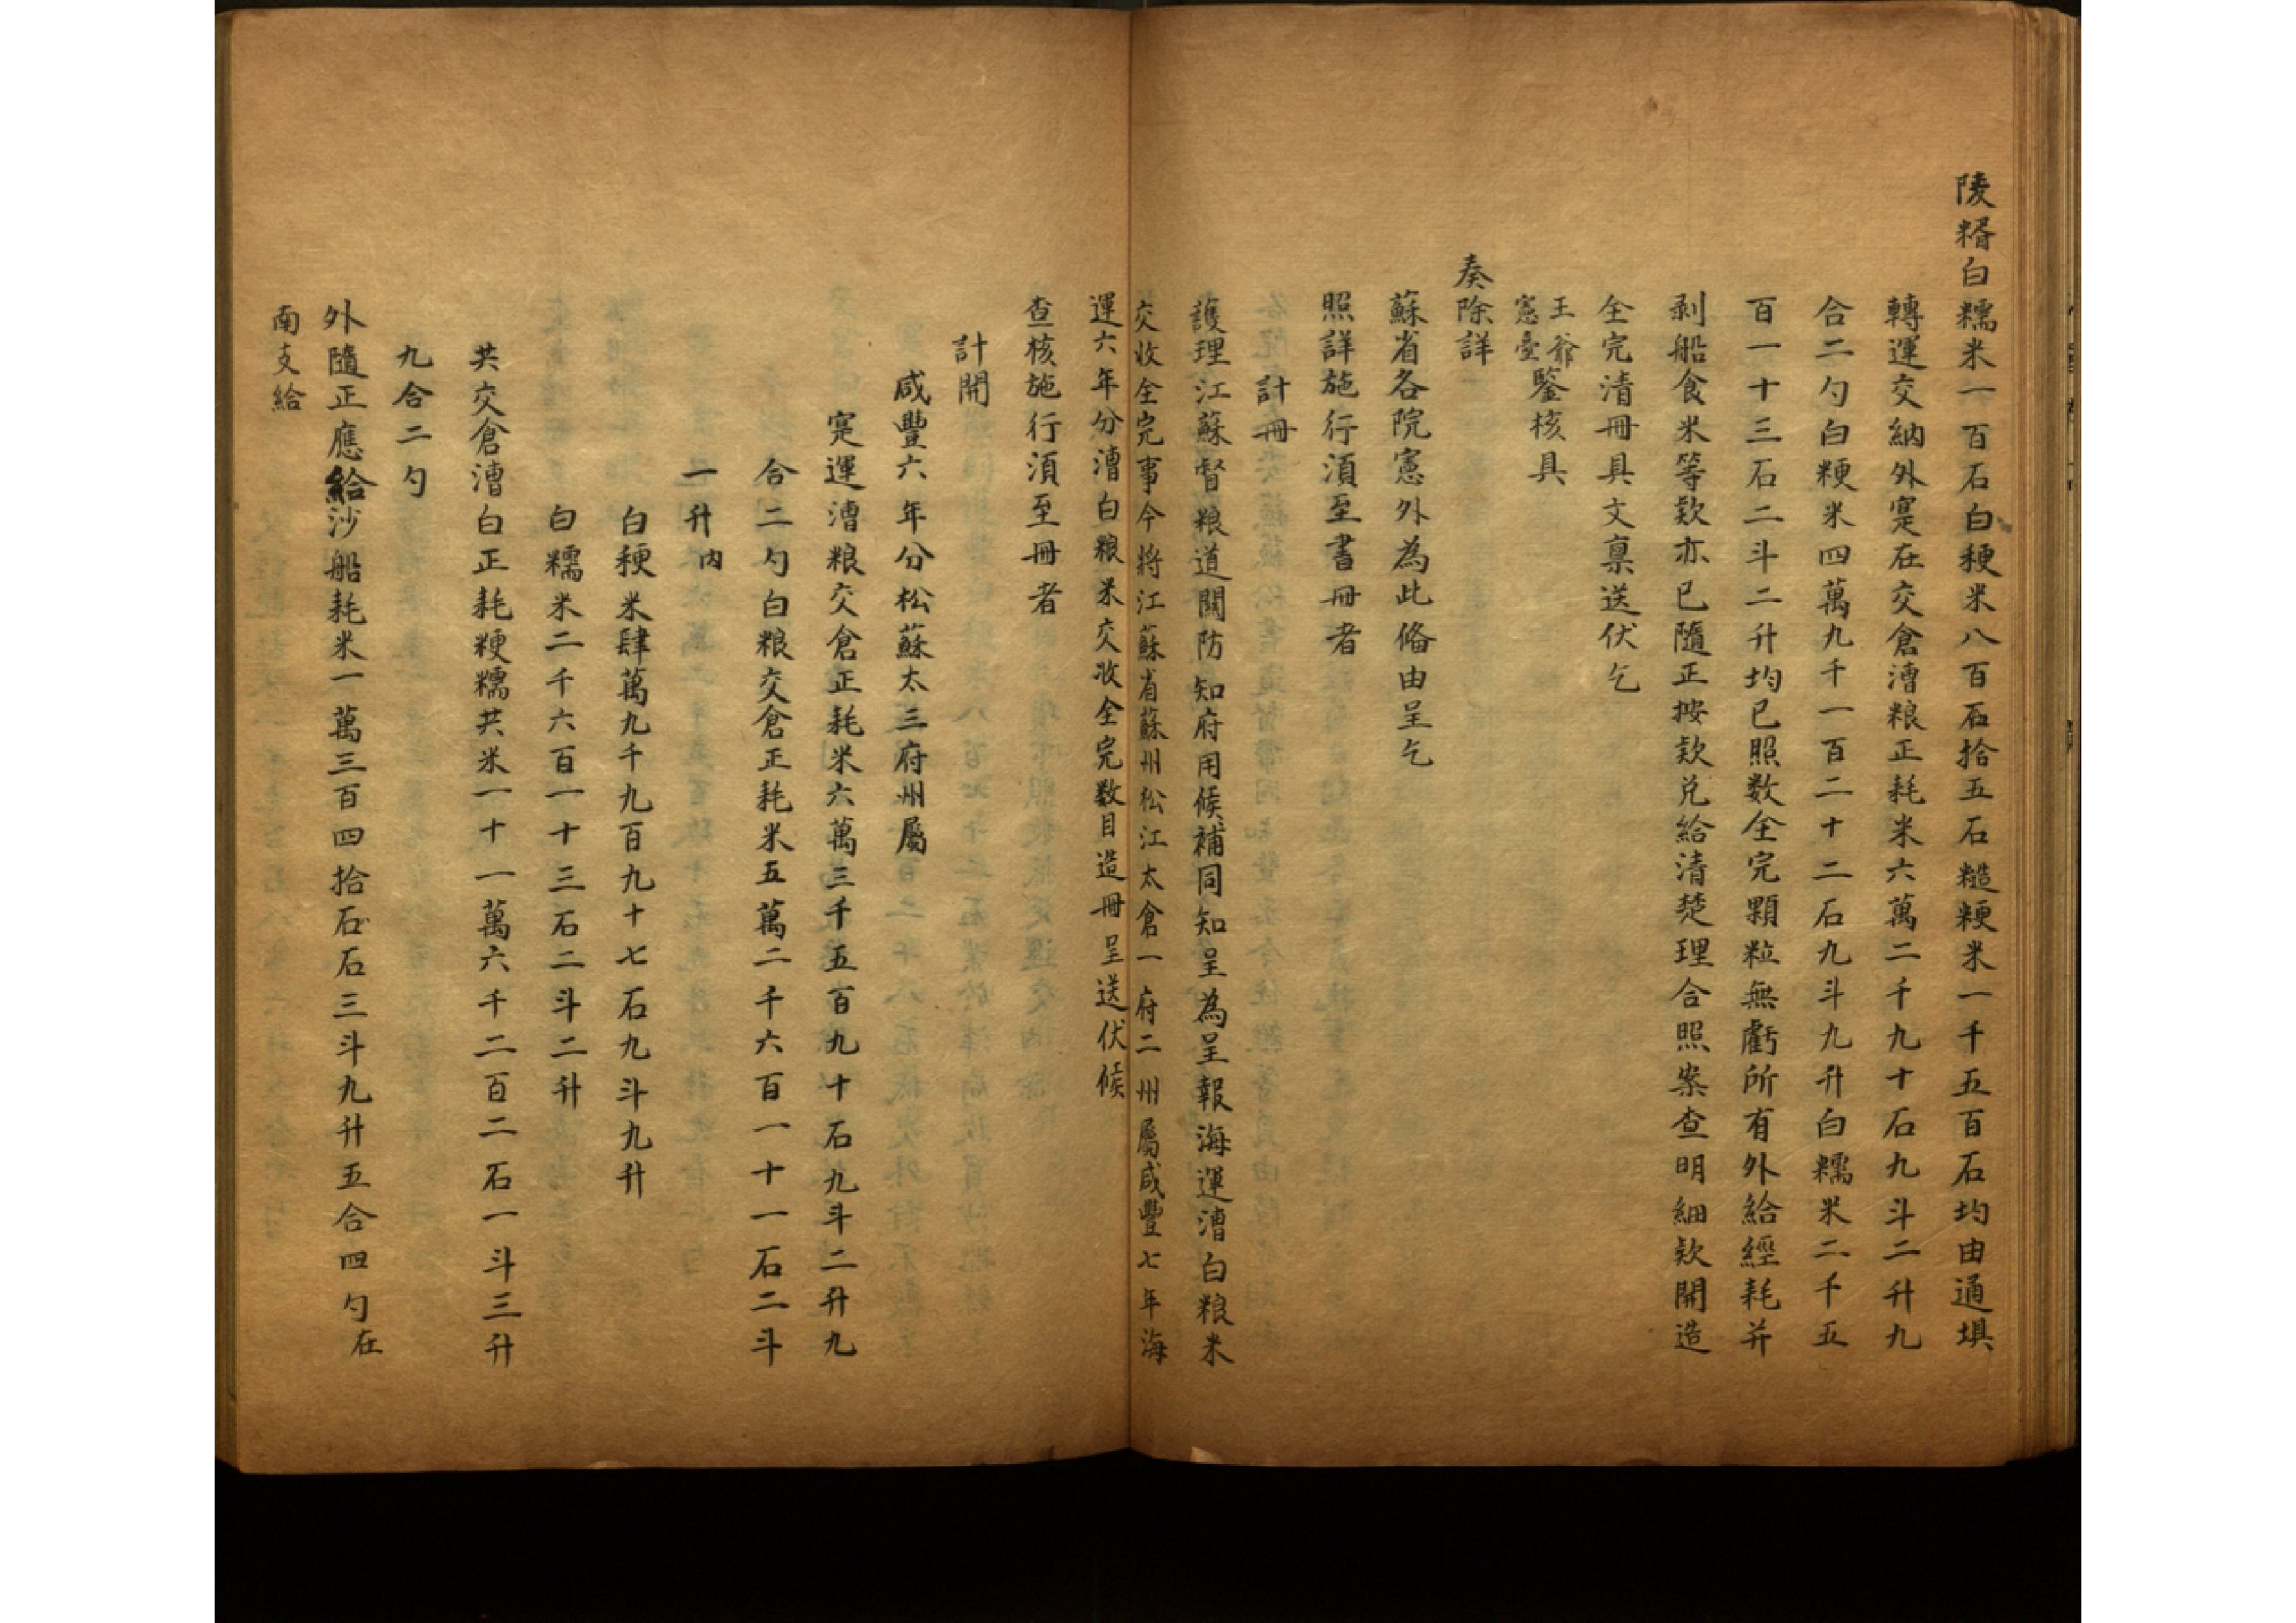 陵糈白糯米一百石白稉米八百石拾五石糙粳米一千五百石均由通埧
轉運交納外寔在交倉漕粮正耗米六萬二千九十石九斗二升九
合二勺白粳米四萬九千一百二十二石九斗九升白糯米二千五
百一十三石二斗二升均已照数全完顆粒無虧所有外給經耗并
剥船食米等欵亦已隨正按欵兑給清楚理合照案查明細欵開造
全完清冊具文禀送伏乞
王爺
憲臺鑒核具
奏除詳
蘇省各院憲外為此俻由呈乞
照詳施行湏至書冊者
計冊
護理江蘇督粮道關防知府用候補同知呈為呈報海運漕白粮米
交收全完事今將江蘇省蘇州松江太倉一府二州屬咸豐七年海
運六年分漕白粮米交收全完数目造冊呈送伏候
查核施行湏至冊者
計開
咸豐六年分松蘇太三府州屬
寔運漕粮交倉正耗米六萬三千五百九十石九斗二升九
合二勺白粮交倉正耗米五萬二千六百一十一石二斗
一升内
白稉米肆萬九千九百九十七石九斗九升
白糯米二千六百一十三石二斗二升
共交倉漕白正耗粳糯共米一十一萬六千二百二石一斗三升
九合二勺
外隨正應給沙船耗米一萬三百四拾石石三斗九升五合四勺在
南支給